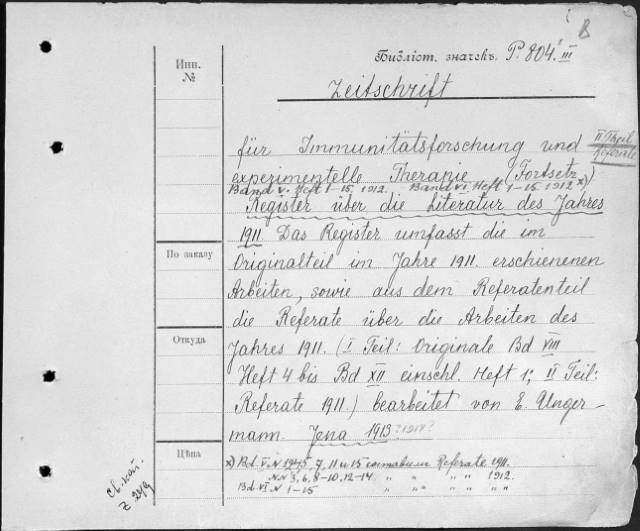 B
Инв.
№
Библіот. значекъ. P. 804. III
Zeitschrift
für Immunitätsforschung und II Theil
Referate
experimentelle Therapie (Fortsetz.)
Band V. Heft 1-15 1912. Band VI Heft 1-15 1912 x)
Register über die Literatur des Jahres
1911. Das Register umfasst die im
По заказу
Originalteil im Jahre 1911 erschienenen
Arbeiten, sowie aus dem Referatenteil
die Referate über die Arbeiten des
Откуда
Jahres 1911. (I Teil: Originale Bd VIII
Heft 4 bis Bd XII einschl. Heft 1; II Teil:
Referate 1911.) bearbeitet von E. Unger-
mann. Jena 1913 ?1914?
Цѣна
x) Bd. V. N 7, 11 и 15 составили Referate 1911.
NN 3, 6, 8-10, 12-14 " " " " 1912.
Bd. VI N 1-15 " " " " "